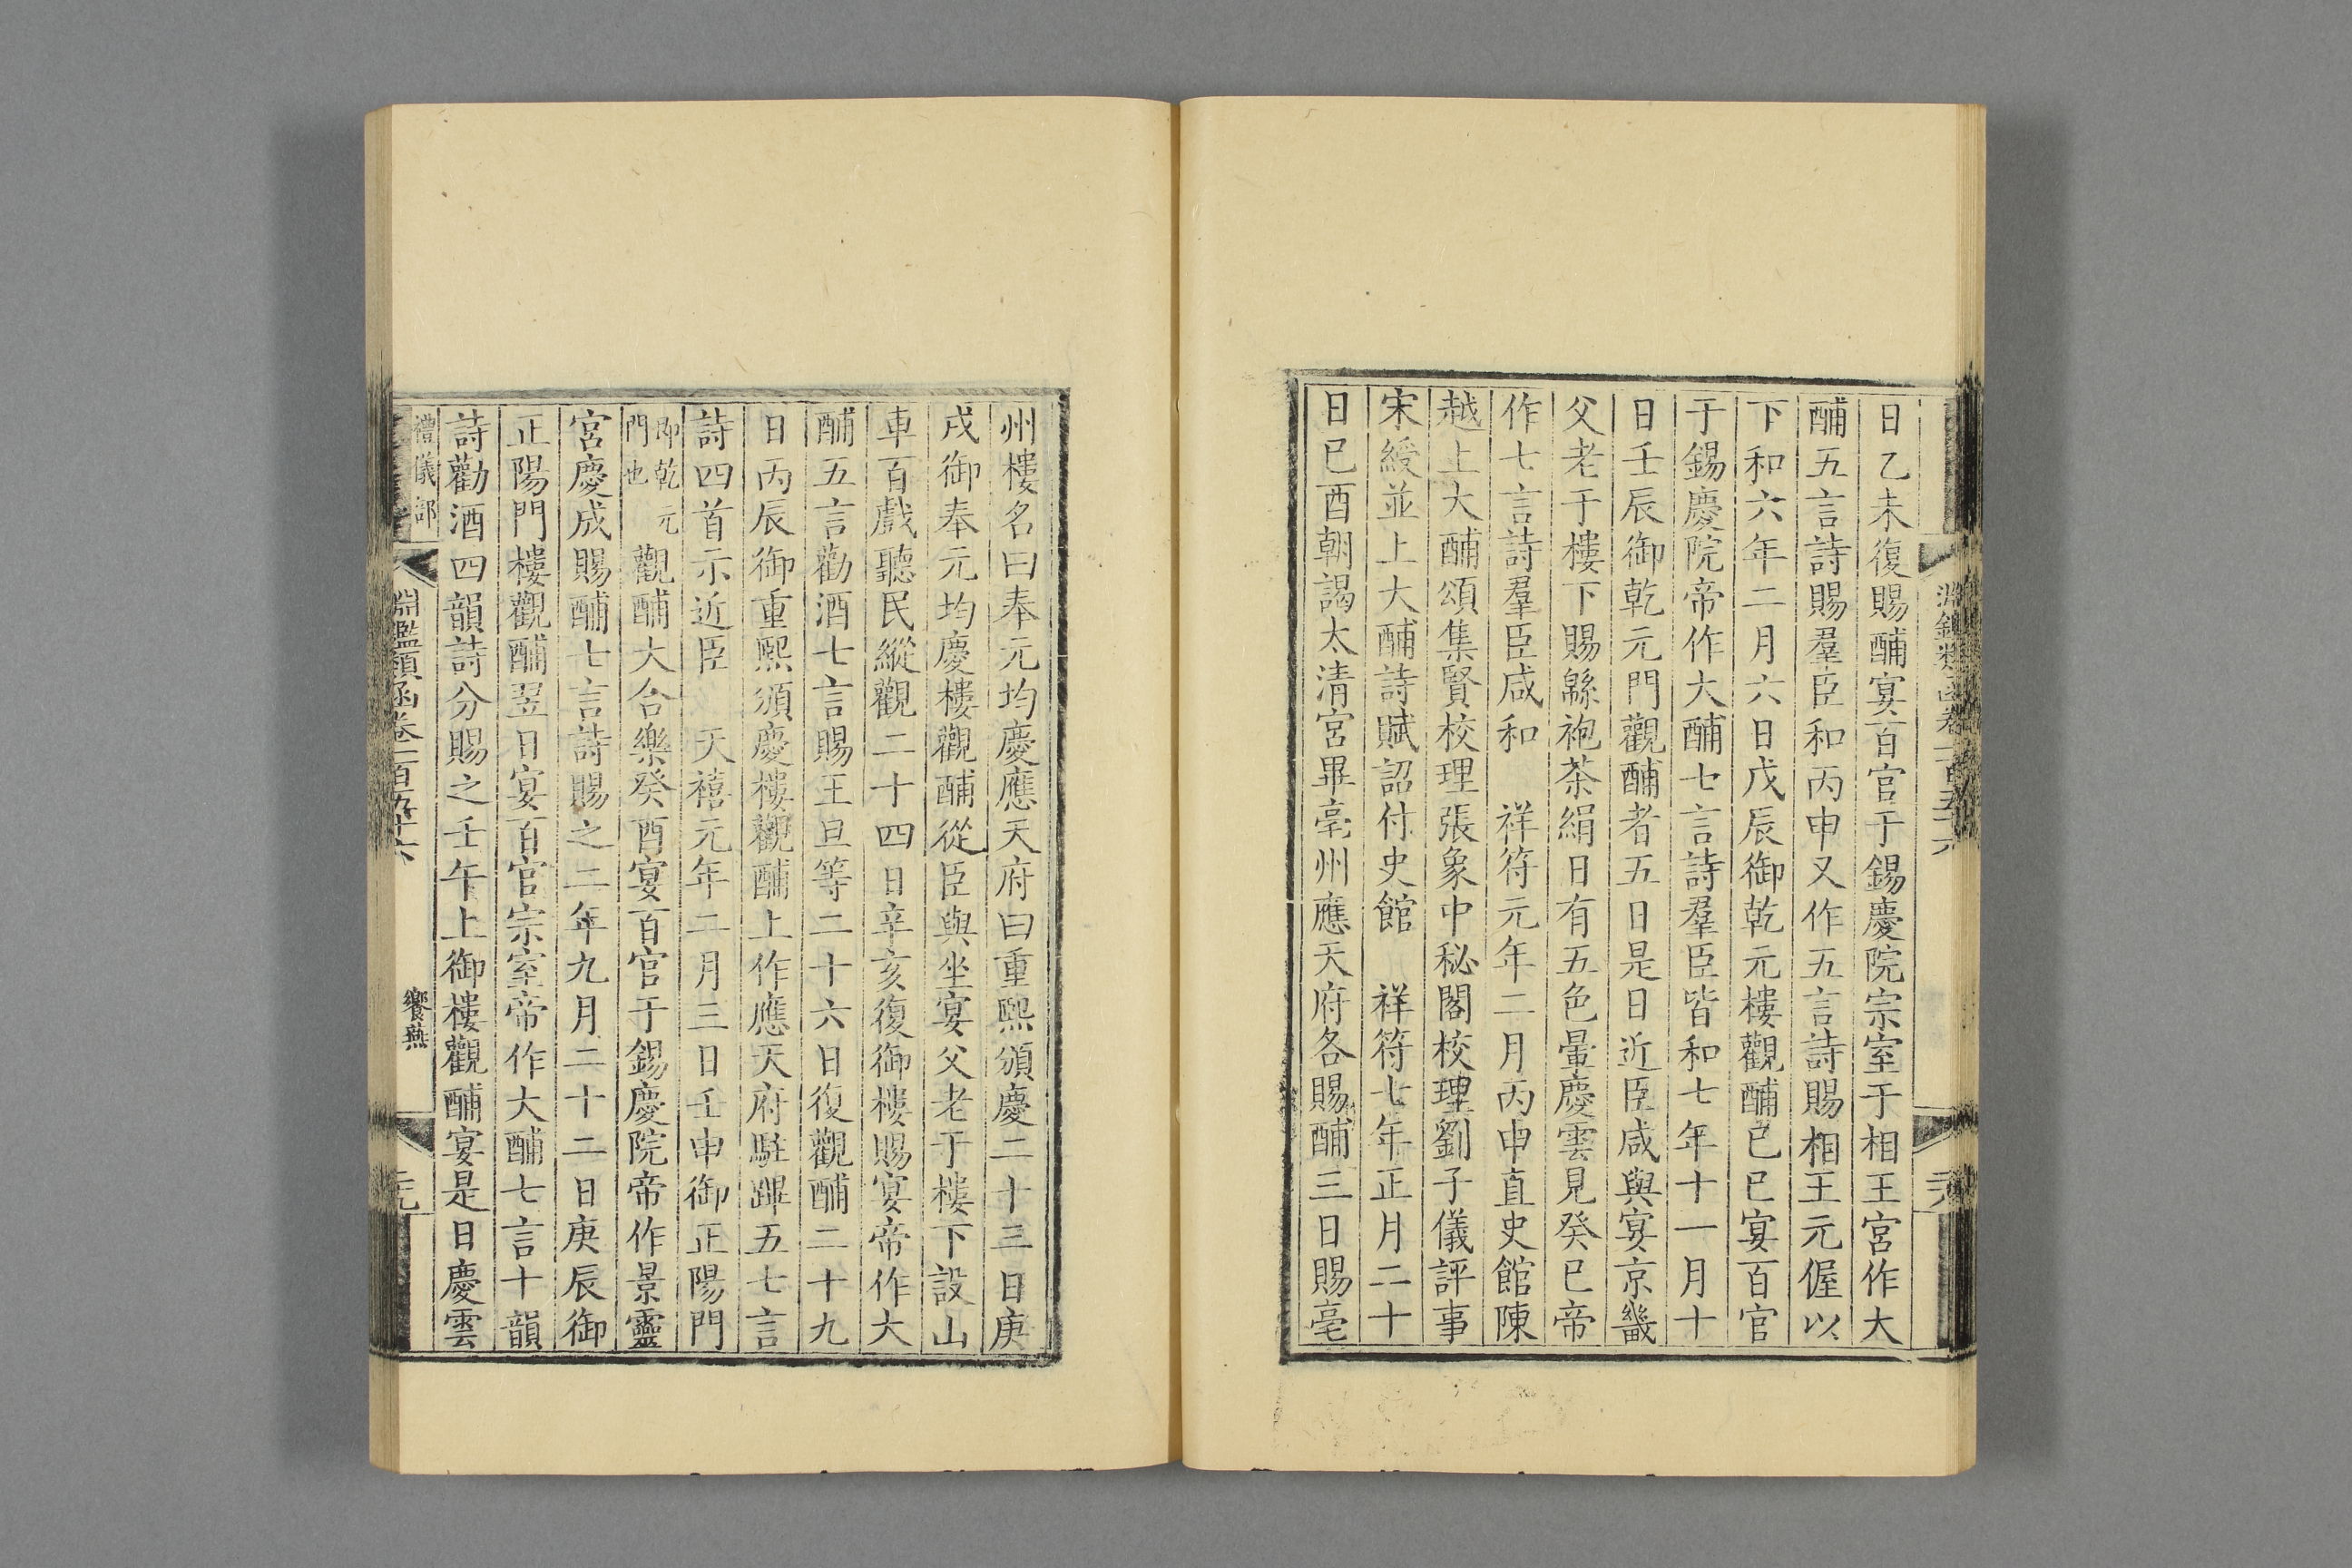 日乙未復賜酺宴百官于錫慶院宗室于相王宮作大
酺五言詩賜羣臣和丙申又作五言詩賜相王元偓以
下和六年二月六日戊辰御乾元樓觀酺己巳宴百官
于錫慶院帝作大酺七言詩羣臣皆和七年十一月十
日壬辰御乾元門觀酺者五日是日近臣咸與宴京畿
父老于樓下賜緜袍茶絹日有五色暈慶雲見癸巳帝
作七言詩羣臣咸和　祥符元年二月丙申直史館陳
越上大酺頌集賢校理張象中秘閣校理劉子儀評事
宋綬並上大酺詩賦詔付史館　祥符七年正月二十
日已酉朝謁太清宮畢亳州應天府各賜酺三日賜亳
州樓名曰奉元均慶應天府曰重熙頒慶二十三日庚
戌御奉元均慶樓觀酺從臣與坐宴父老于樓下設山
車百戲聽民縱觀二十四日辛亥復御樓賜宴帝作大
酺五言勸酒七言賜王旦等二十六日復觀酺二十九
日丙辰御重熙頒慶樓觀酺上作應天府駐蹕五七言
詩四首示近臣　天禧元年二月三日壬申御正陽門
即乾元
門也
觀酺大合樂癸酉宴百官于錫慶院帝作景靈
宮慶成賜酺七言詩賜之二年九月二十二日庚辰御
正陽門樓觀酺翌日宴百官宗室帝作大酺七言十韻
詩勸酒四韻詩分賜之壬午上御樓觀酺宴是日慶雲
禮儀部
淵鑑類函卷一百五十六
饗燕